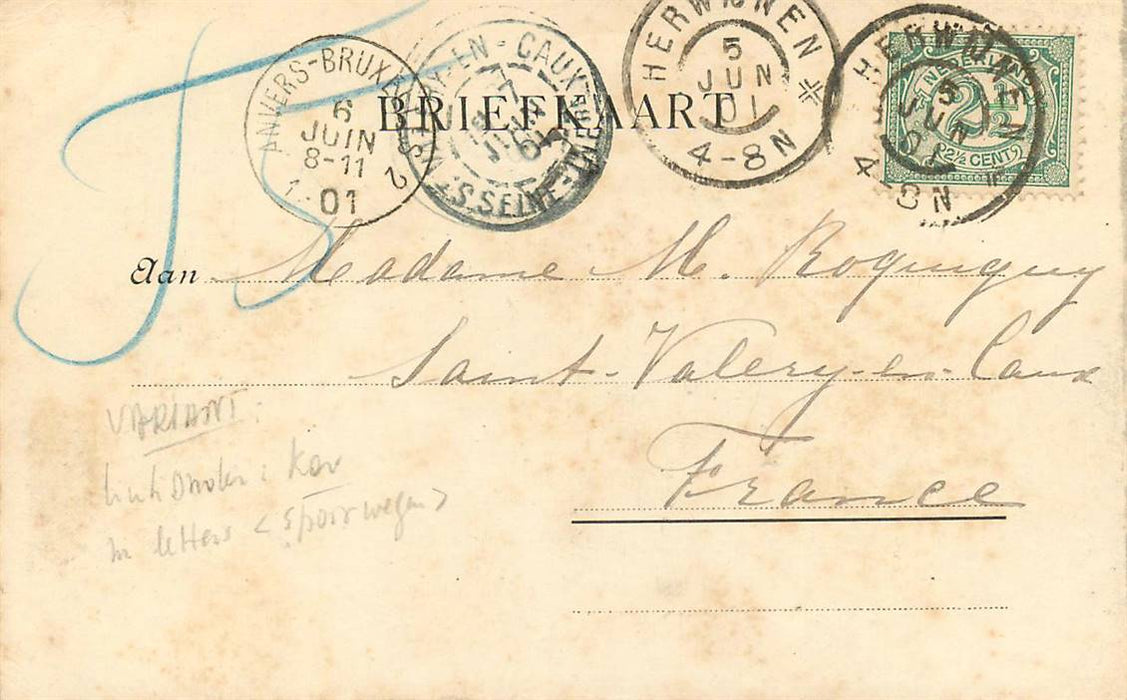 ANVERS-BRUXELLES 2
6
JUIN
8-11
1 01
Sᵗ VALERY-EN-CAUX
7
JUIN
01
(SEINE-INFRE)
HERWIJNEN
5
JUN
01
4-8N
HERWIJNEN
5
JUN
01
4-8N
NEDERLAND
2½
2½ CENT
BRIEFKAART
T
5
Aan Madame M. Roquigny
Saint-Valery-en-Caux
France
VARIANT:
links onder: Kav
in letters < spoorwegen >